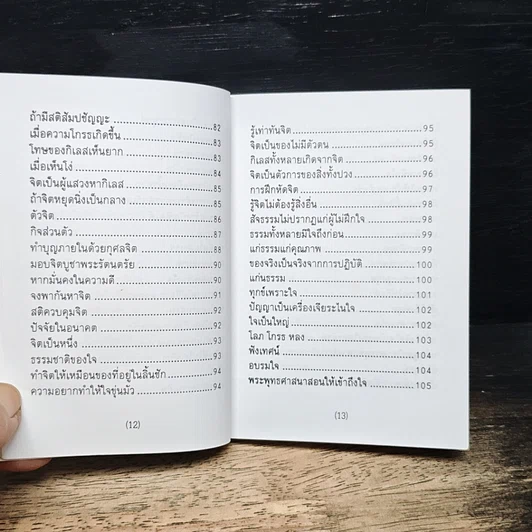 ถ้ามีสติสัมปชัญญะ 82
เมื่อความโกรธเกิดขึ้น 83
โทษของกิเลสเห็นยาก 83
เมื่อเห็นโง่ 84
จิตเป็นผู้แสวงหากิเลส 85
ถ้าจิตหยุดนิ่งเป็นกลาง 86
ตัวจิต 86
กิจส่วนตัว 87
ทำบุญภายในด้วยกุศลจิต 88
มอบจิตบูชาพระรัตนตรัย 90
หากมั่นคงในความดี 90
จงพากันหาจิต 91
สติควบคุมจิต 91
ปัจจัยในอนาคต 92
จิตเป็นหนึ่ง 92
ธรรมชาติของใจ 93
ทำจิตให้เหมือนของที่อยู่ในลิ้นชัก 94
ความอยากทำให้ใจขุ่นมัว 94
(12)
รู้เท่าทันจิต 95
จิตเป็นของไม่มีตัวตน 95
กิเลสทั้งหลายเกิดจากจิต 96
จิตเป็นตัวการของสิ่งทั้งปวง 96
การฝึกหัดจิต 97
รู้จิตไม่ต้องรู้สิ่งอื่น 98
สัจธรรมไม่ปรากฏแก่ผู้ไม่ฝึกใจ 98
ธรรมทั้งหลายมีใจถึงก่อน 99
แก่ธรรมแก่คุณภาพ 99
ของจริงเป็นจริงจากการปฏิบัติ 100
แก่นธรรม 100
ทุกข์เพราะใจ 101
ปัญญาเป็นเครื่องเจียระไนใจ 102
ใจเป็นใหญ่ 102
โลภ โกรธ หลง 103
ฟังเทศน์ 104
อบรมใจ 104
พระพุทธศาสนาสอนให้เข้าถึงใจ 105
(13)